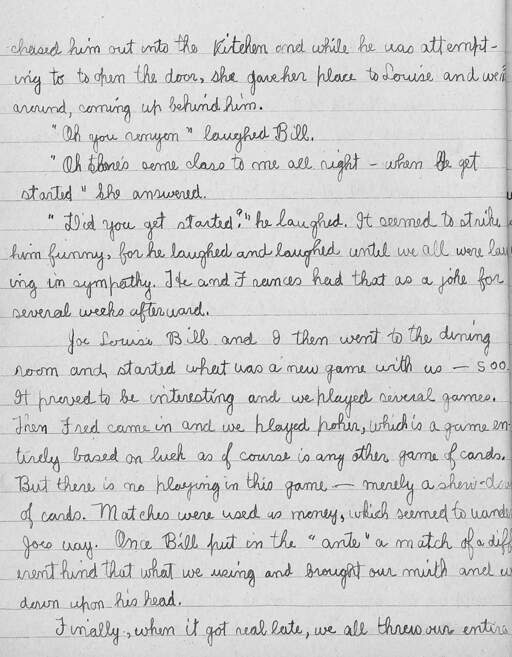 chased him out into the kitchen and while he was attempt-
ing to to open the door, she gave her place to Louise and went
around, coming up behind him.
"Oh you " laughed Bill.
"Oh there's some class to me all right - when get
started" She answered.
"Did you get started?" he laughed. It seemed to strike
him funny, for he laughed and laughed until we all were lau
ing in sympathy. He and Frances had that as a joke for
several weeks afterward.
Joe Louise Bill and I then went to the dining
room and started what was a new game with us — 500.
It proved to be interesting and we played several games.
Then Fred came in and we played poker, which is a game en-
tirely based on luck as of course is any other game of cards.
But there is no playing in this game — merely a show-dow
of cards. Matches were used as money, which seemed to wande
Joes way. Once Bill put in the "ante" a match of a diff
erent kind that what we using and brought our mirth and w
down upon his head.
Finally, when it got real late, we all threw our entire